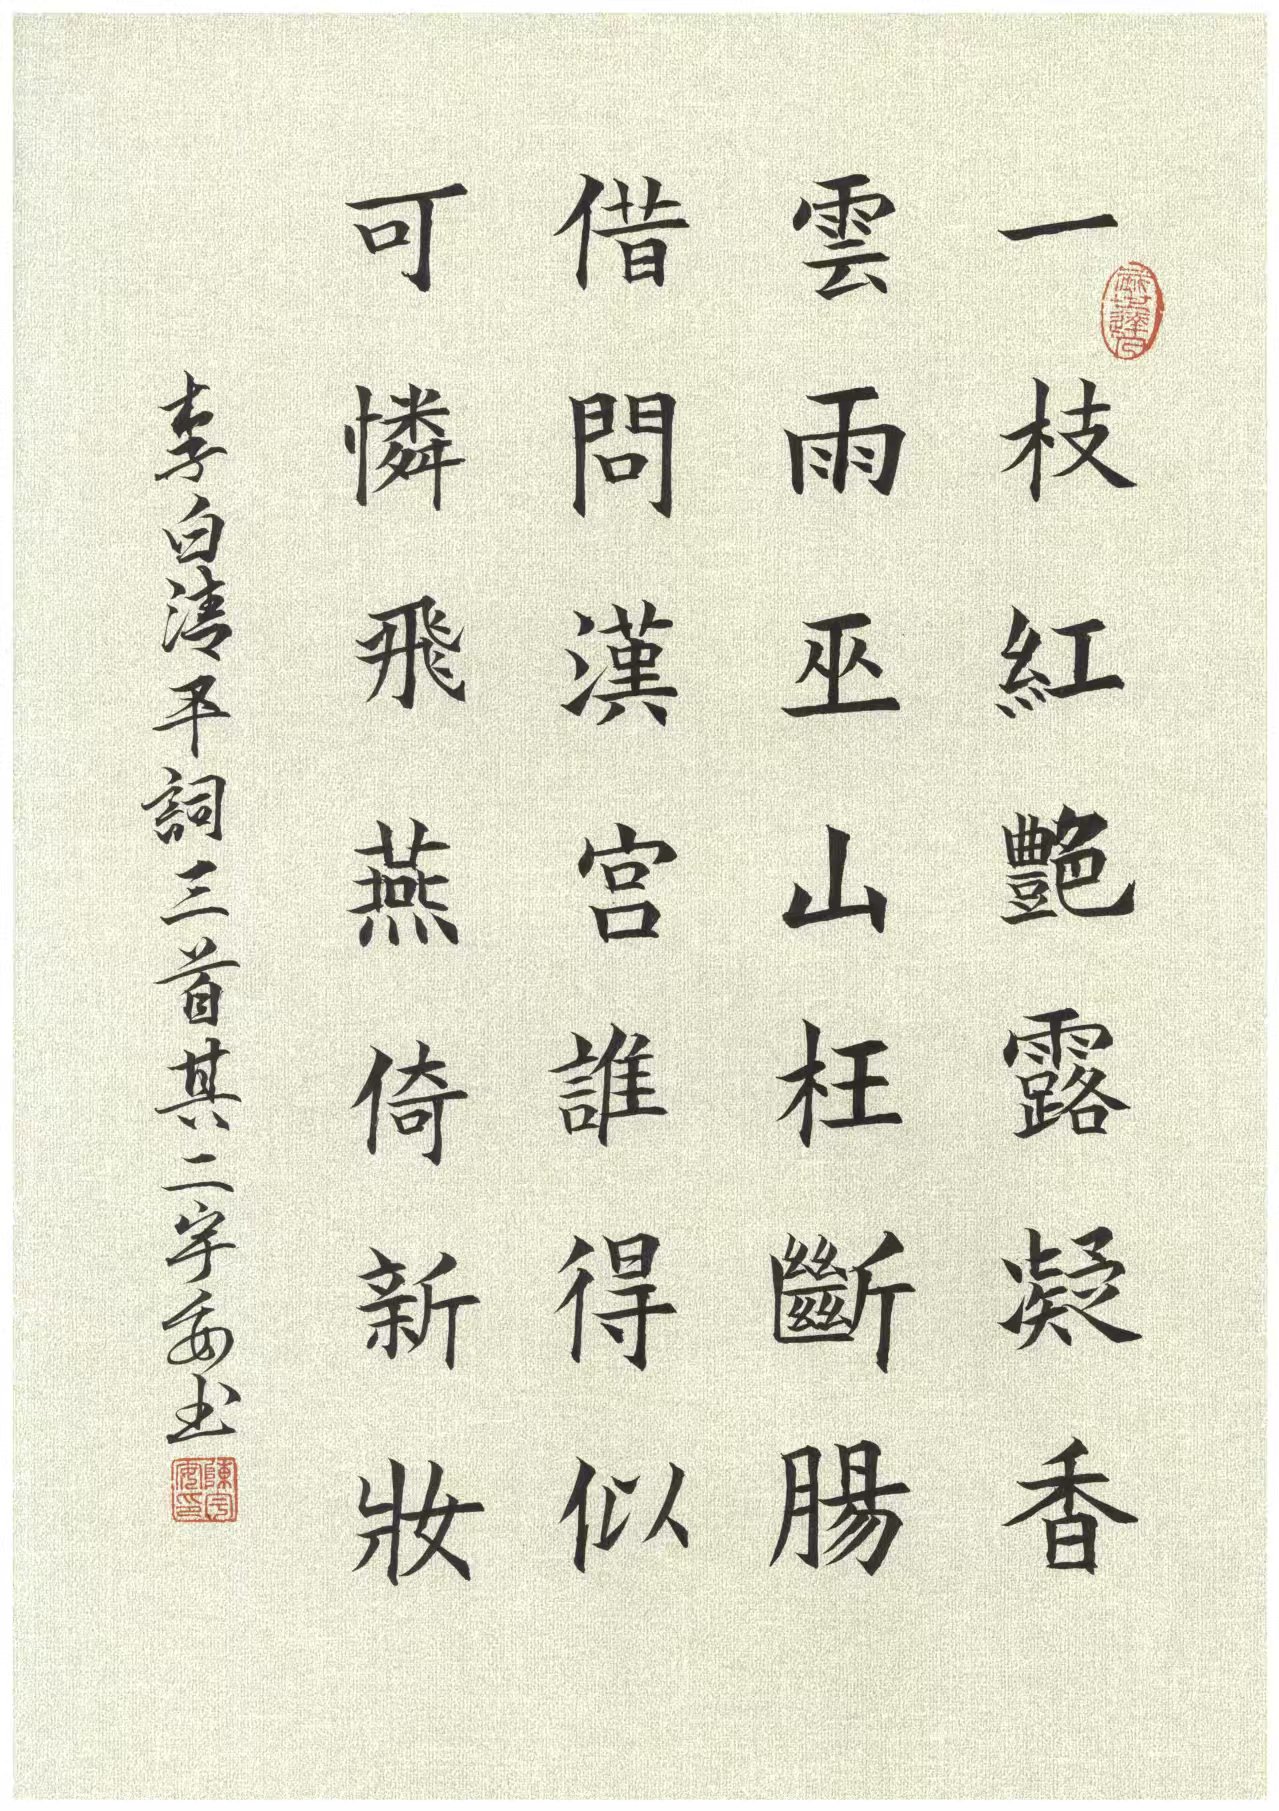 一枝紅艷露凝香
雲雨巫山枉斷腸
借問漢宫誰得似
可憐飛燕倚新妝
李白清平詞三首其二宇安书